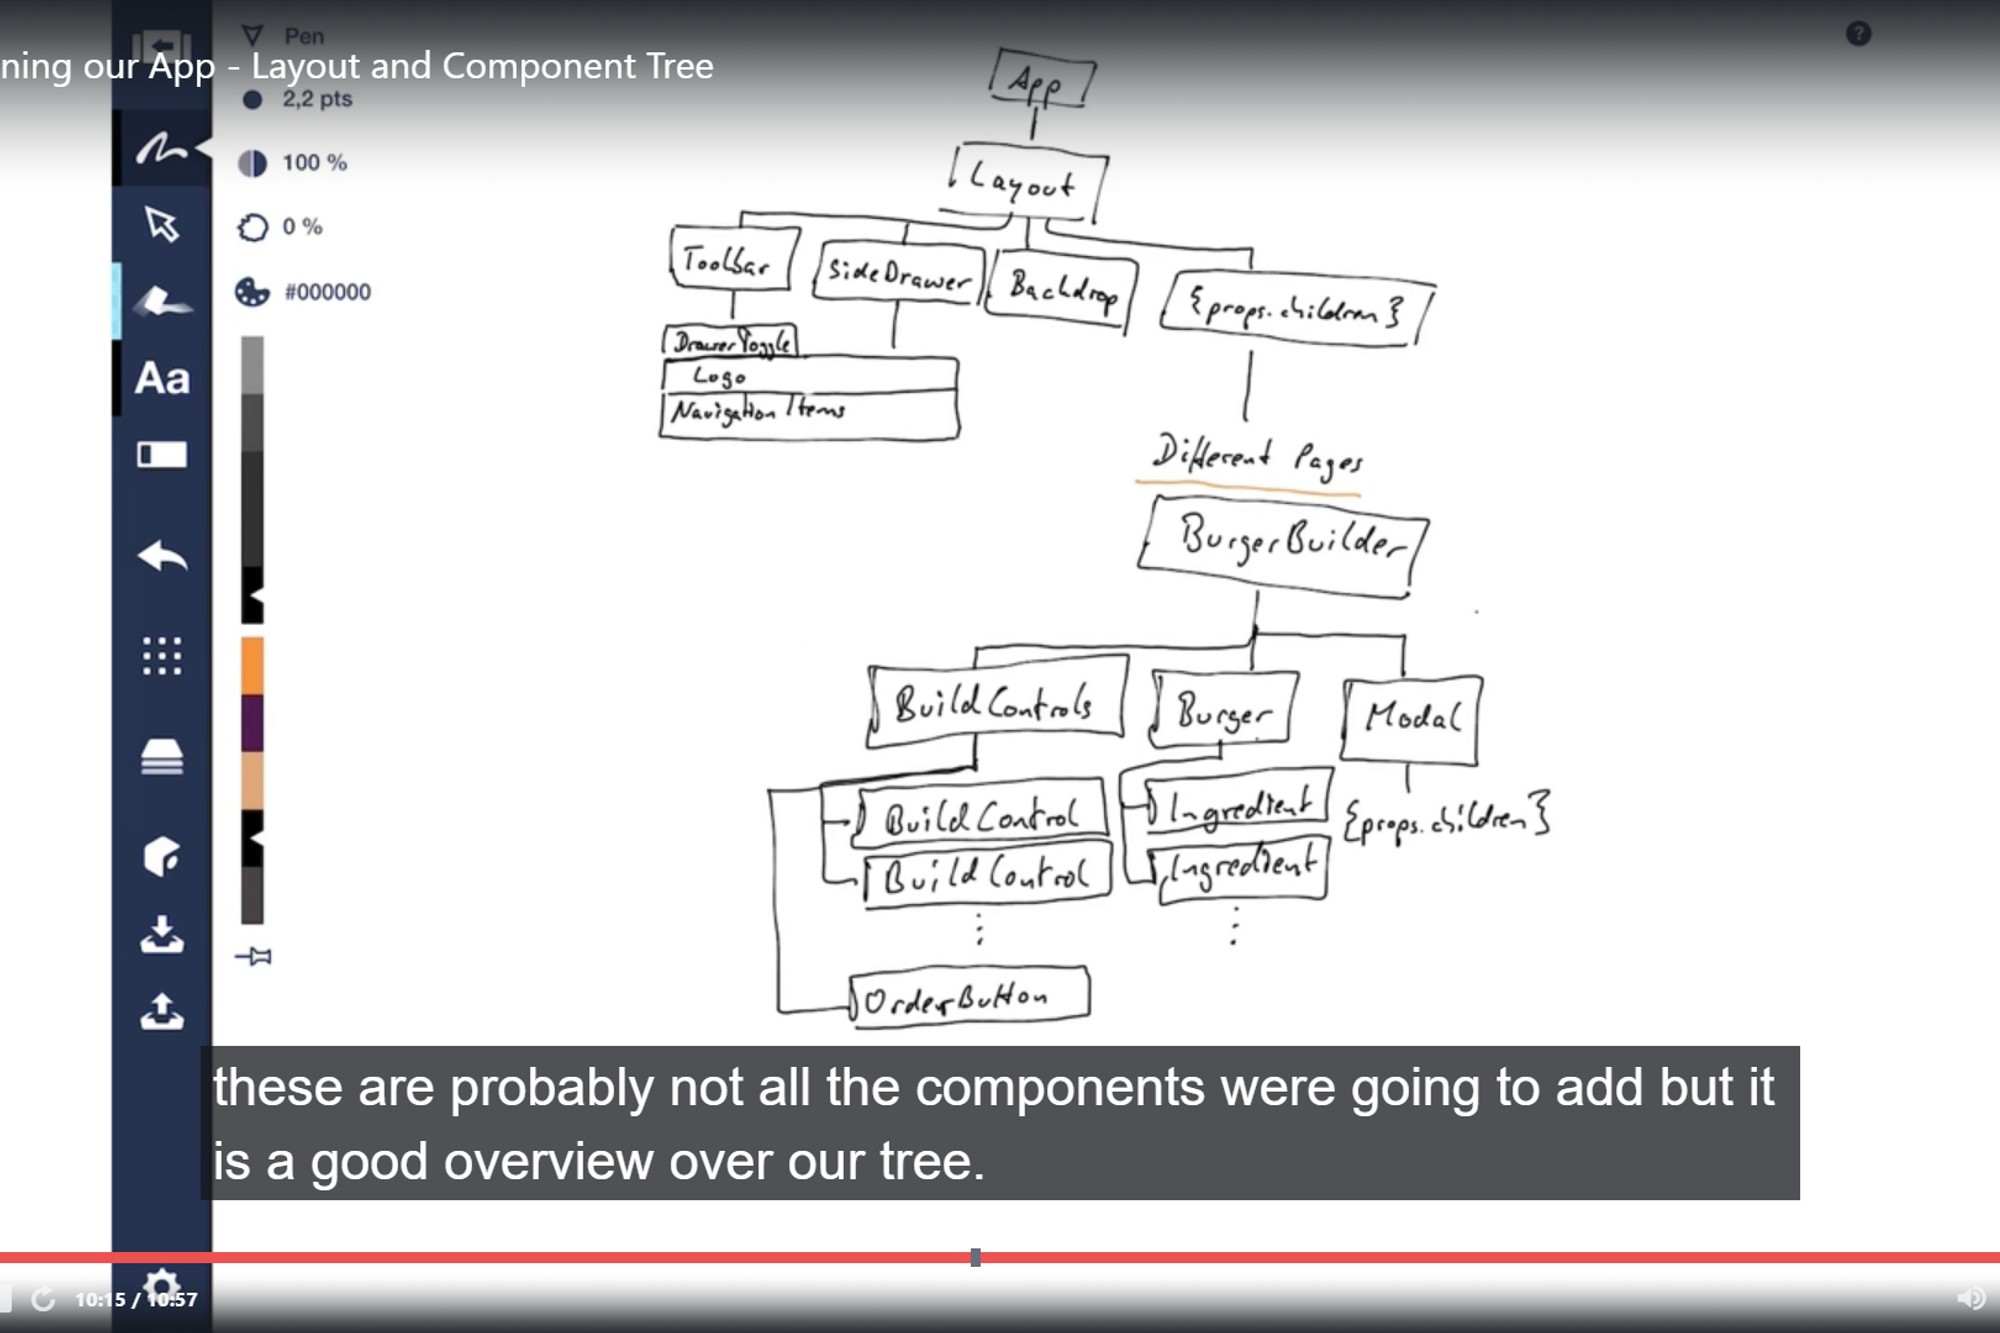 Pen
ning our App - Layout and Component Tree
2,2 pts
100 %
0 %
#000000
Aa
?
App
Layout
Toolbar
SideDrawer
Backdrop
{props.children}
DrawerToggle
Logo
Navigation Items
Different Pages
BurgerBuilder
BuildControls
Burger
Modal
BuildControl
Ingredient
{props.children}
BuildControl
Ingredient
OrderButton
these are probably not all the components were going to add but it
is a good overview over our tree.
10:15 / 10:57